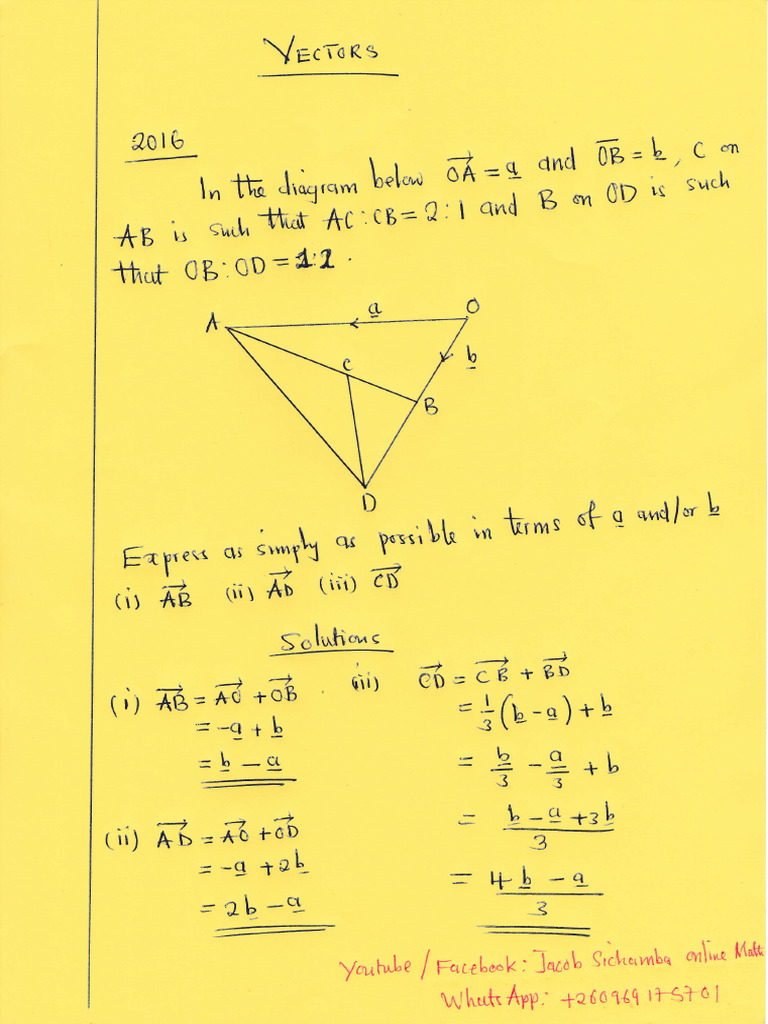 VECTORS
2016
In the diagram below OA = a and OB = b, C on
AB is such that AC:CB = 2:1 and B on OD is such
that OB:OD = 1:2.
a
O
A
b
C
B
D
Express as simply as possible in terms of a and/or b
(i) AB (ii) AD (iii) CD
Solutions
(i) AB = AO + OB
= -a + b
= b - a
(ii) AD = AO + OD
= -a + 2b
= 2b - a
(iii) CD = CB + BD
= 1/3 (b - a) + b
= b/3 - a/3 + b
= b - a + 3b / 3
= 4b - a / 3
Youtube / Facebook: Jacob Sichamba online Math
WhatsApp: +260969175701